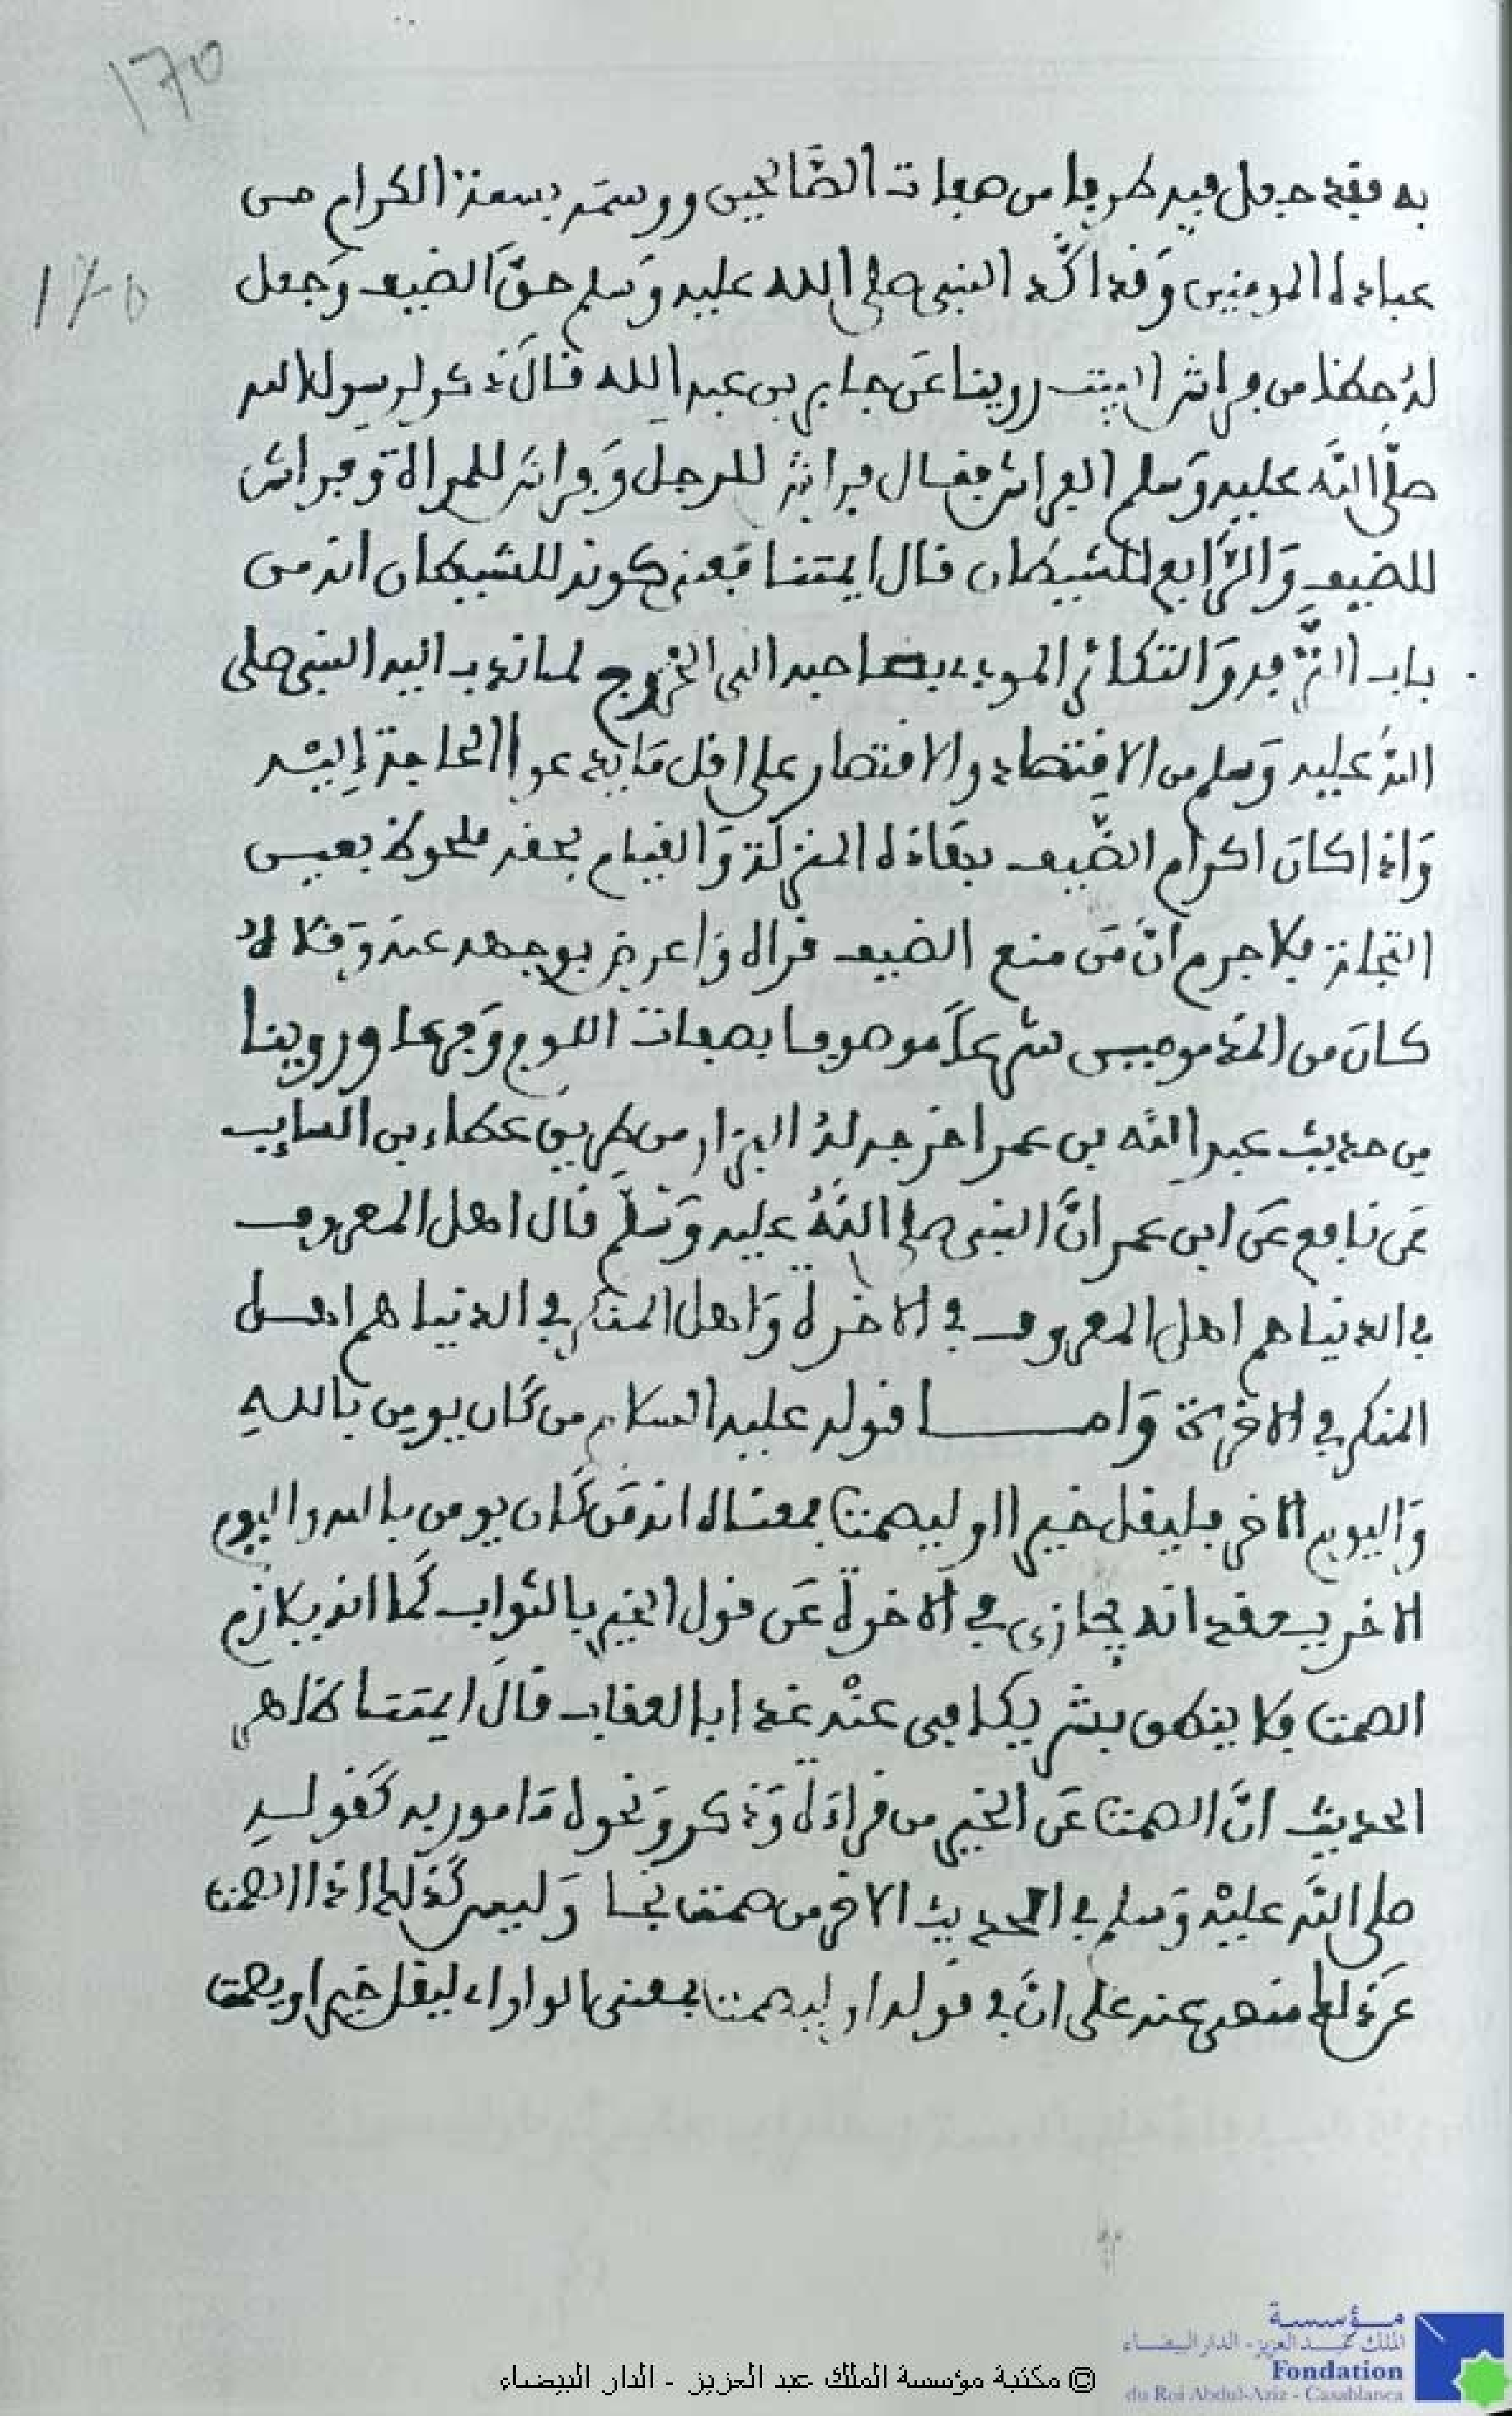 170
به فقد جعل فيه طرفا من صفات الصَّالحين ووسمه بسمة الكرام من
170
عباده المومنين وَقد اكَّد النبي صلى الله عليه وَسلم حقَّ الضيف وَجعل
لهُ حظا من فراش البيت روينا عَن جابر بن عبد الله قالَ ذكر لرسول الله
صلَّى اللَّه عليه وَسلم الفراش فقال فراش للرجل وَفراش للمراة وَفراش
للضيف وَالرَّابع للشيطان قال ايمتنا فمعنى كونه للشيطان انه من
باب التَّرفه وَالتكاثر المودي بصاحبه الى الخروج لما ندب اليه النبي صلى
اللهُ عليه وَسلم من الاقتصاد والاقتصار على اقل مَا يدعو الحاجة إليْه
وَاذا كانَ اكرام الضَّيف بهَاذه المنزلة وَالقيام بحقه ملحوظ بعين
التجلة فلا جرم انَّ مَن منع الضيف قراه وَاعرض بوجهه عنه وَقلاهُ
كانَ من المذمومين شرعاً موصوفا بصفات اللوم وَمرعا وروينا
من حديث عبد اللَّه بن عمر اخرجه لهُ البزار من طريق عطاء بن السايب
عَن نافع عَن ابن عمر انَّ النبي صلى اللَّهُ عليه وَسلَّم قال اهل المعروف
في الدنيا هم اهل المعروف في الاخرة وَاهل المنكر في الدنيا هم اهل
المنكر في الاخرة وَامـــا قوله عليه السلام من كَان يومن باللهِ
وَاليوم الاخر فليقل خيرا او ليصمت بمعناه انه مَن كَان يومن بالله واليوم
الاخر يعتقد انه يجازى في الاخرة عَن قول الخير بالثواب كَما انه يلازم
الصمت فلا ينطق بشر يكافى عنْه غدا بالعقاب قالَ ايمتنا ظاهر
الحديث انَّ الصمت عَن الخير من قراءة وَذكر وَنحوه مَامور به كَقوله
صلى اللَّه عليْه وَسلم في الحديث الاخر من صمت نجا وَليس كَذلك اذ الصمت
عَن ذلك منهي عنه على انَّ في قوله او ليصمت بمعنى الواو اي ليقل خيرا ويصمت
مؤسسة
الملك عبد العزيز - الدار البيضاء
Fondation
du Roi Abdul-Aziz - Casablanca
© مكتبة مؤسسة الملك عبد العزيز - الدار البيضاء